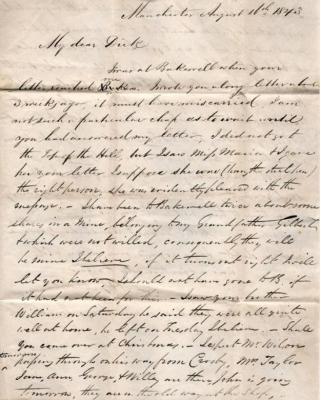 Manchester August 11th 1843.
My dear Dick
I was at Bakewell when your
letter reached me. I wrote you a long letter about
3 weeks ago, it must have miscarried, I am
not such a particular chap as to wait until
you had answered my letter. I did not get
the Top of the Hill, but I saw Miss Maria & I gave
her your letter I suppose she was (hang the steel pen)
the right person, she was evidently pleased with the
message. I have been to Bakewell twice about some
shares in a Mine, belonging to my Grandfather Gilbert
& which were not willed, consequently they will
be mine I believe, if it turns out right I will
let you know, I should not have gone to B. if
it had not been for this. I saw your brother
William on Saturday he said they were all quite
well at home, he left on Tuesday I believe. Shall
you come over at Christmas. I expect Mr. Wilson
tomorrow
passing through on his way from Crosby, Mrs. Taylor
Ann, George & Willy are there John is going
tomorrow, they are in the old way at the Shop,